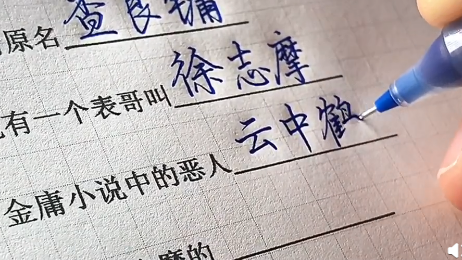 原名 查良镛
有一个表哥叫 徐志摩
金庸小说中的恶人 云中鹤
摩的